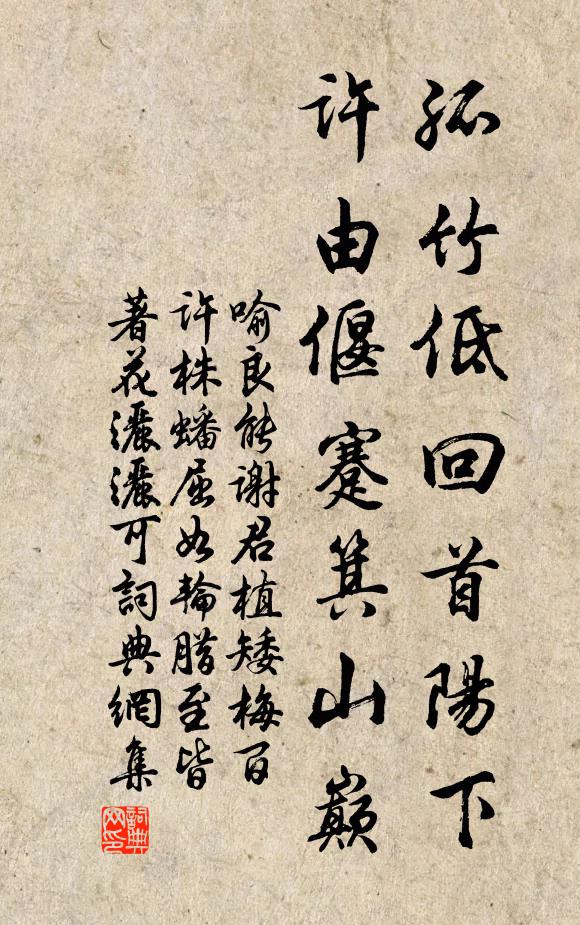 孤竹低回首陽下
許由偃蹇箕山巔
喻良能謝君植矮梅百
許株蟠屈如輪腊至皆
著花灑灑可詞典網集
詞典网印